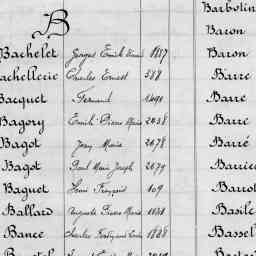 B
Bachelet Georges Emile 1117
achellerie Charles Ernest 588
Bacquet Fernand 1490
Bagory Emile Pierre Marie 2058
Bagot Jean Marie 2078
Bagot Paul Marie Joseph 2079
Baguet Henri François 109
Ballard Auguste Pierre Marie
Bance Charles 1888
Barbotin
Baron
Baron
Barre
Barre
Barre
Barré
Barrot
Basile
Bassel